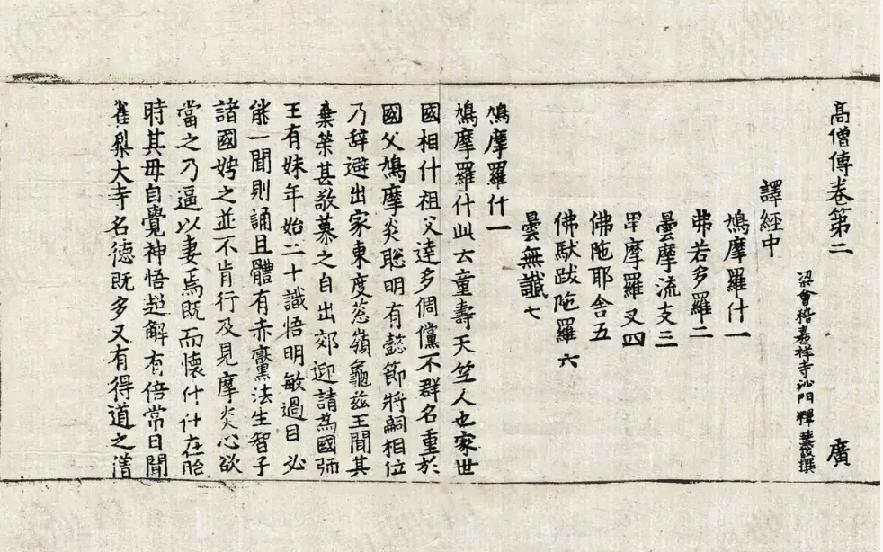 高僧傳卷第二　廣
梁會稽嘉祥寺沙門釋慧皎撰
譯經中
鳩摩羅什一
弗若多羅二
曇摩流支三
卑摩羅叉四
佛陁耶舍五
佛馱跋陁羅六
曇無讖七
鳩摩羅什一
鳩摩羅什此云童壽天竺人也家世
國相什祖父達多倜儻不群名重於
國父鳩摩炎聰明有懿節將嗣相位
乃辭避出家東度葱嶺龜茲王聞其
棄榮甚敬慕之自出郊迎請為國師
王有妹年始二十識悟明敏過目必
能一聞則誦且體有赤黶法生智子
諸國娉之並不肯行及見摩炎心欲
當之乃逼以妻焉既而懷什什在胎
時其母自覺神悟超解有倍常日聞
雀梨大寺名德既多又有得道之僧